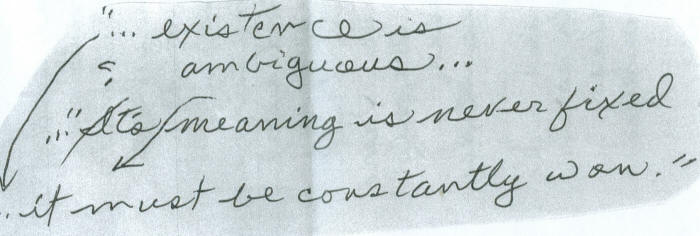 "... existence is
ambiguous...
..."Its meaning is never fixed
.. it must be constantly won."